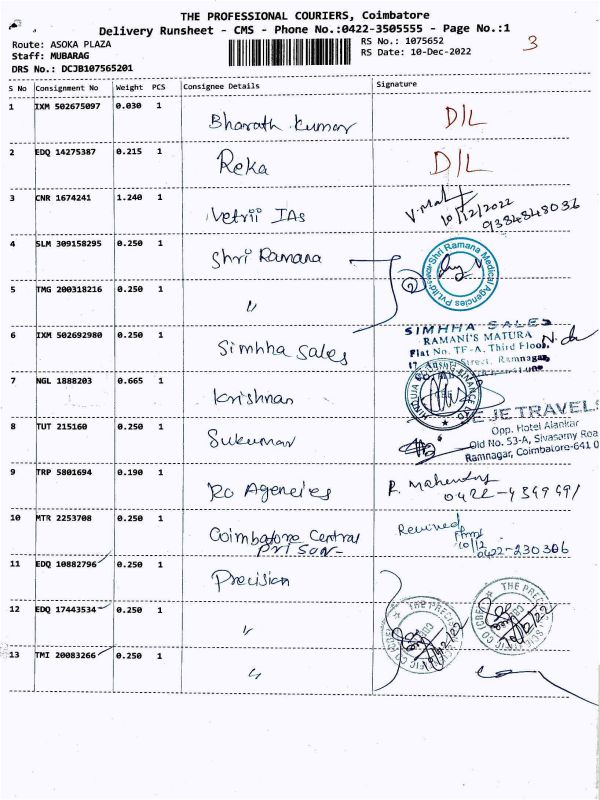 THE PROFESSIONAL COURIERS, Coimbatore
Delivery Runsheet - CMS - Phone No.:0422-3505555 - Page No.:1
Route: ASOKA PLAZA
Staff: MUBARAG
DRS No.: DCJB107565201
RS No.: 1075652
RS Date: 10-Dec-2022
3
S No Consignment No Weight PCS Consignee Details Signature
1 IXM 502675097 0.030 1 Bharath Kumar D/L
2 EDQ 14275387 0.215 1 Reka D/L
3 CNR 1674241 1.240 1 Vetrii IAs
10/12/2022
9384848036
4 SLM 309158295 0.250 1 Shri Ramana 2
Shri Ramana Medical Agencies Pvt.Ltd
5 TMG 200318216 0.250 1 "
6 IXM 502692980 0.250 1 Simhha Sales
SIMHHA SALES
RAMANI'S MATURA
Flat No. TF-A, Third Floor,
Street, Ramnagar,
7 NGL 1888203 0.665 1 Krishnan
HINDUJA HOUSING FINANCE
8 TUT 215160 0.250 1 Sukumar
E JE TRAVELS
Opp. Hotel Alankar
Old No. 53-A, Sivasamy Roa
Ramnagar, Coimbatore-641 0
9 TRP 5801694 0.190 1 Rc Agencies R. Mahendra
0422-4349491
10 MTR 2253708 0.250 1 Coimbatore Central
Prison
Received
10/12
0422-230306
11 EDQ 10882796 0.250 1 Precision
12 EDQ 17443534 0.250 1 "
THE PREC
10/12/22
THE PREC
10/12/22
13 TMI 20083266 0.250 1 "